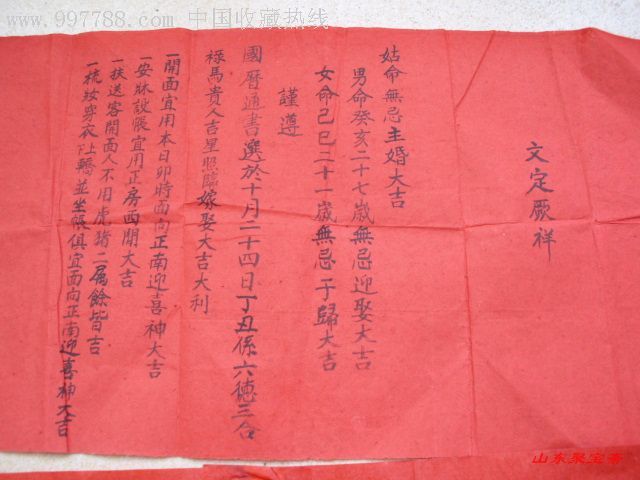 www.997788.com 中国收藏热线
文定厥祥
姑命無忌主婚大吉
男命癸亥二十七歲無忌迎娶大吉
女命己巳二十一歲無忌于歸大吉
謹遵
國曆通書選於十月二十四日丁丑係六德三合
祿馬貴人吉星照臨嫁娶大吉大利
一開面宜用本日卯時面向正南迎喜神大吉
一安牀設帳宜用正房西間大吉
一扶送客開面人不用虎猪二属餘皆吉
一梳妝穿衣上下轎並坐帳俱宜面向正南迎喜神大吉
山东聚宝斋